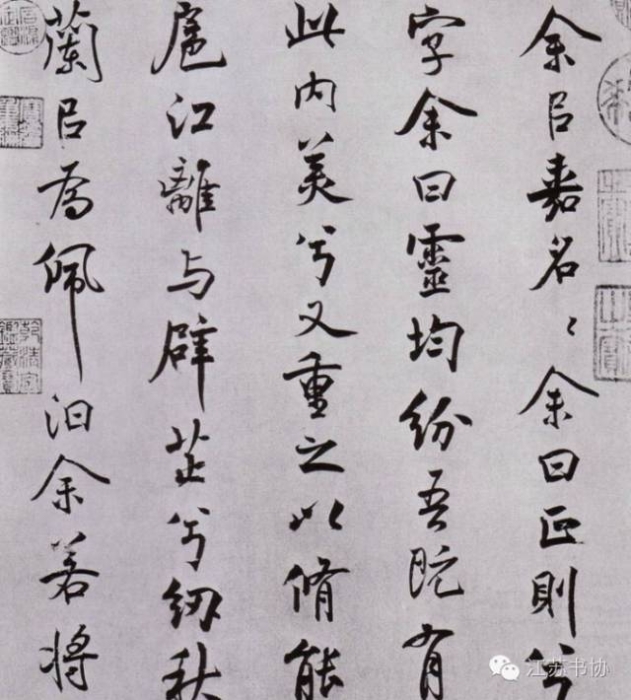 余㠯嘉名名余曰正則
字余曰靈均紛吾既有
此内美兮又重之以脩能
扈江離与辟芷兮紉秋
蘭㠯為佩汩余若將
江苏书协